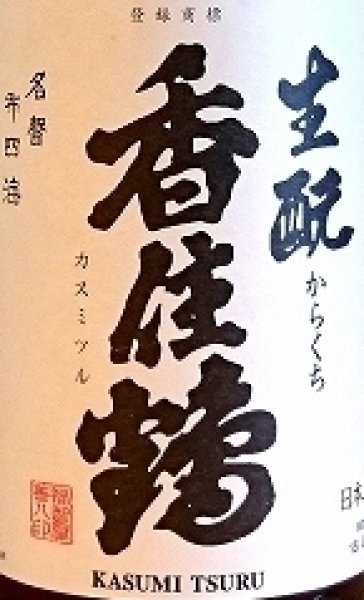 登録商標
生酛
からくち
香住鶴
カスミツル
名声
布四海
日本
KASUMI TSURU